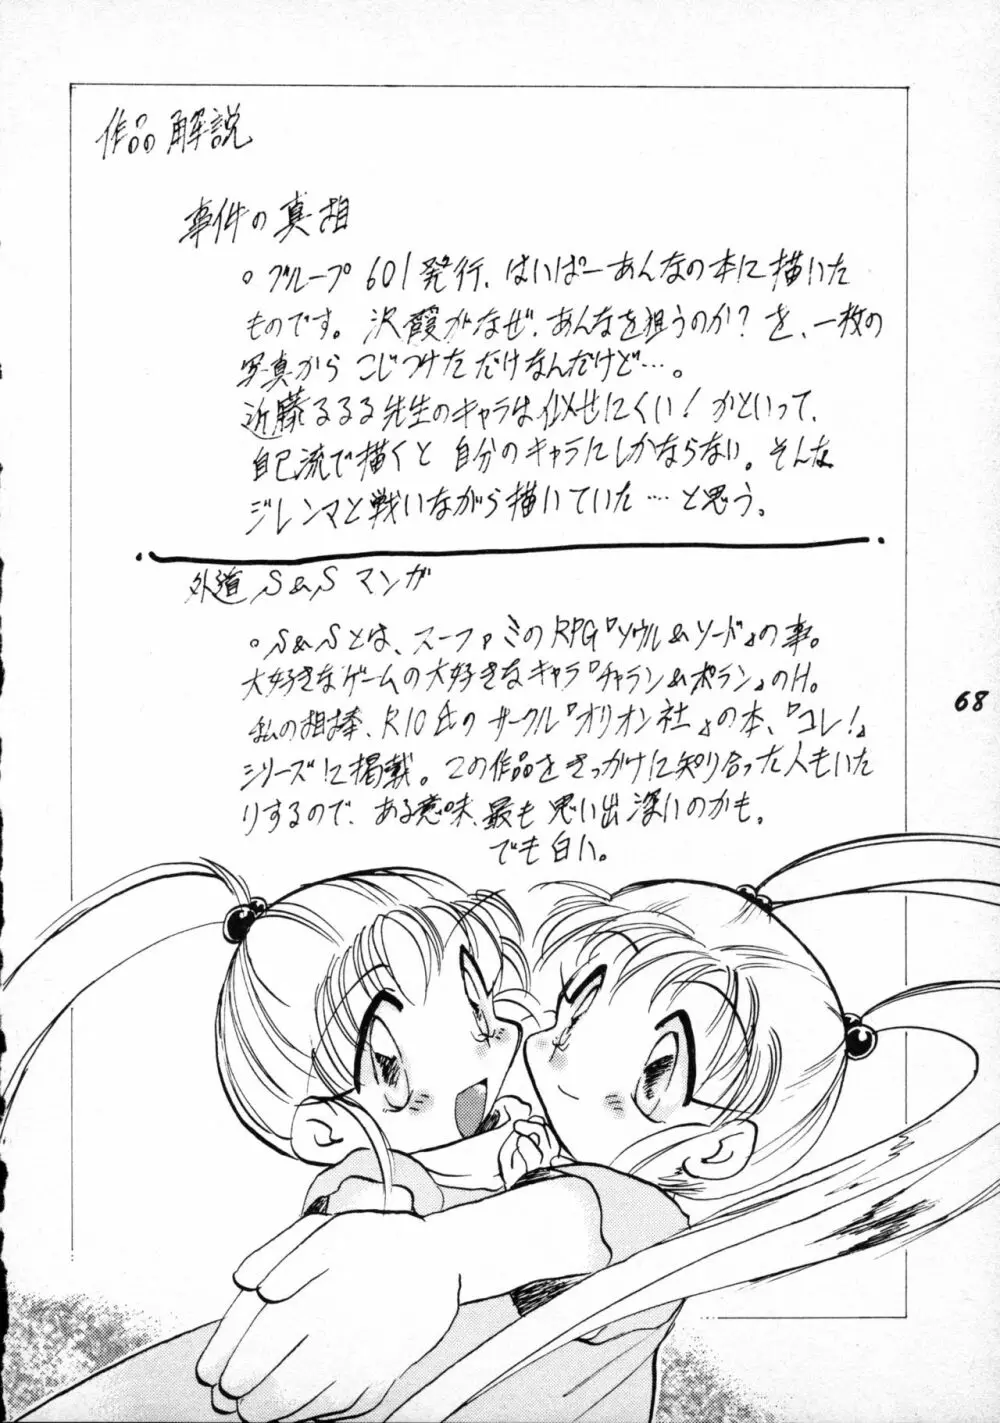 作品の解説
事件の真相
○グループ601発行、はいぱーあんなの本に描いた
ものです。沢霞がなぜ、あんなを狙うのか?を、一枚の
写真から こじつけた だけなんだけど…。
近藤るるる先生のキャラは似せにくい!かといって、
自己流で描くと 自分のキャラにしかならない。そんな
ジレンマと戦いながら描いていた…と思う。
外道 S&S マンガ
○S&Sとは、スーファミのRPG『ソウル&ソード』の事。
大好きなゲームの大好きなキャラ『チャラン&ポラン』のH。
私の相棒、R10氏の サークル『オリオン社』の本、『コレ!』
シリーズに掲載。この作品をきっかけに知り合った人もいた
りするので、ある意味、最も 思い出深いのかも。
でも白い。
68